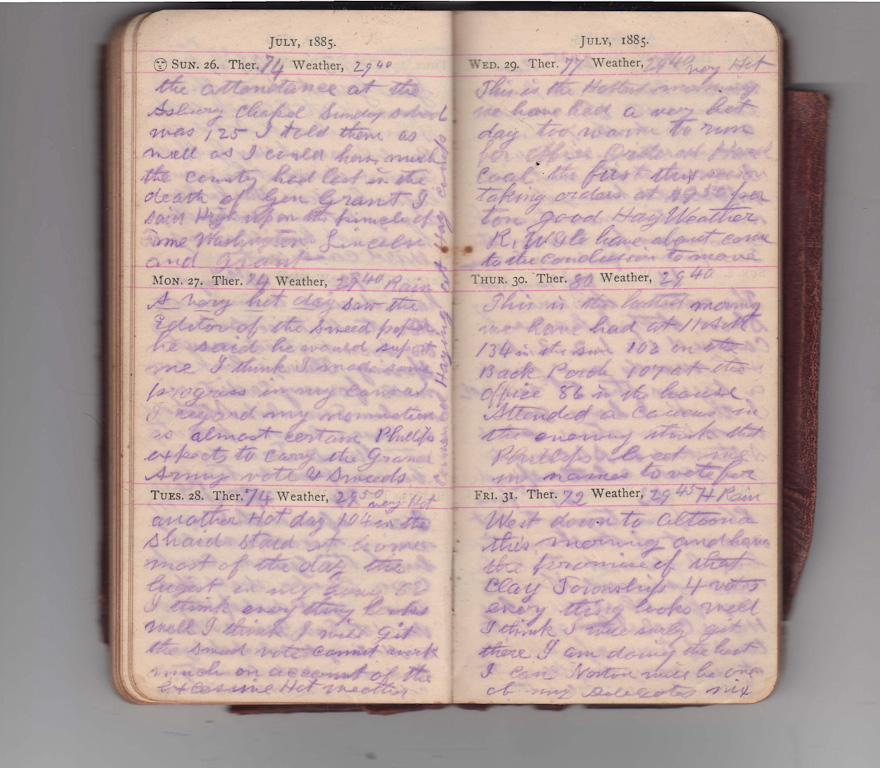 JULY, 1885.
SUN. 26. Ther. 74 Weather, 29 40
the attendance at the
Asbury Chapel Sunday School
was 125 I told them as
well as I could how much
the county had lost in the
death of Gen Grant I
said High upon the pinicle of
fame Washington Lincoln
and Grant
MON. 27. Ther. 74 Weather, 29 40 Rain
A very hot day saw the
Editor of the Sweed paper
he said he would suport
me I think I made some
progress in my canvas
I regard my nomination
is almost certain Phillips
expects to carry the Grand
Army vote & Sweeds
TUES. 28. Ther. 74 Weather, 29 50 very Hot
another Hot day 104 in the
Shaid staid at home
most of the day the
in my
I think every thing looks
well I think I will git
the Sweed vote cannot work
much on account of the
excessive Hot weather
Haying
JULY, 1885.
WED. 29. Ther. 77 Weather, 29 40 very Hot
This is the Hottest morning
we have had a very hot
day too warm to run
for office Ordered Hard
Coal the first this season
taking orders at per
ton good Hay Weather
R. W & Co have about come
to the conclusion to move
THUR. 30. Ther. 80 Weather, 29 40
This is the hottest morning
we have had at 11 o clk
134 in the sun 102 on the
Back Porch 107 at the
office 86 in the house
Attended a Caucus in
the evening think that
Phillips beat me
in names to vote for
FRI. 31. Ther. 72 Weather, 29 45 H Rain
West down to Altoona
this morning and have
the promise of what
Clay Township 4 votes
every thing looks well
I think I will surly git
there I am doing the best
I can Norton will be one
of my Delegates nix